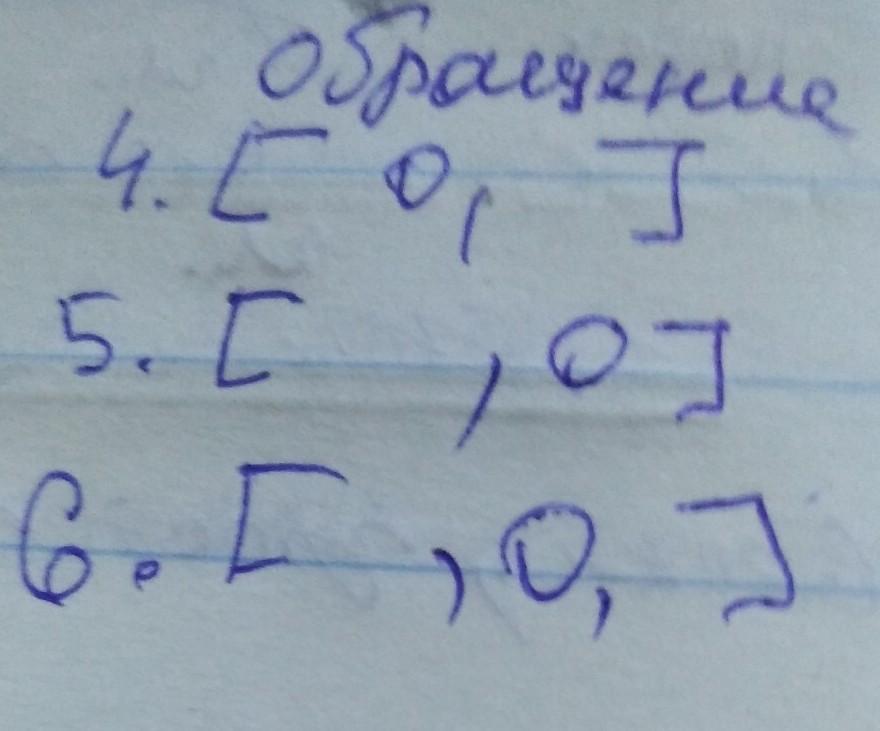 Обращение
4. [ О, ]
5. [ , О]
6. [ , О, ]